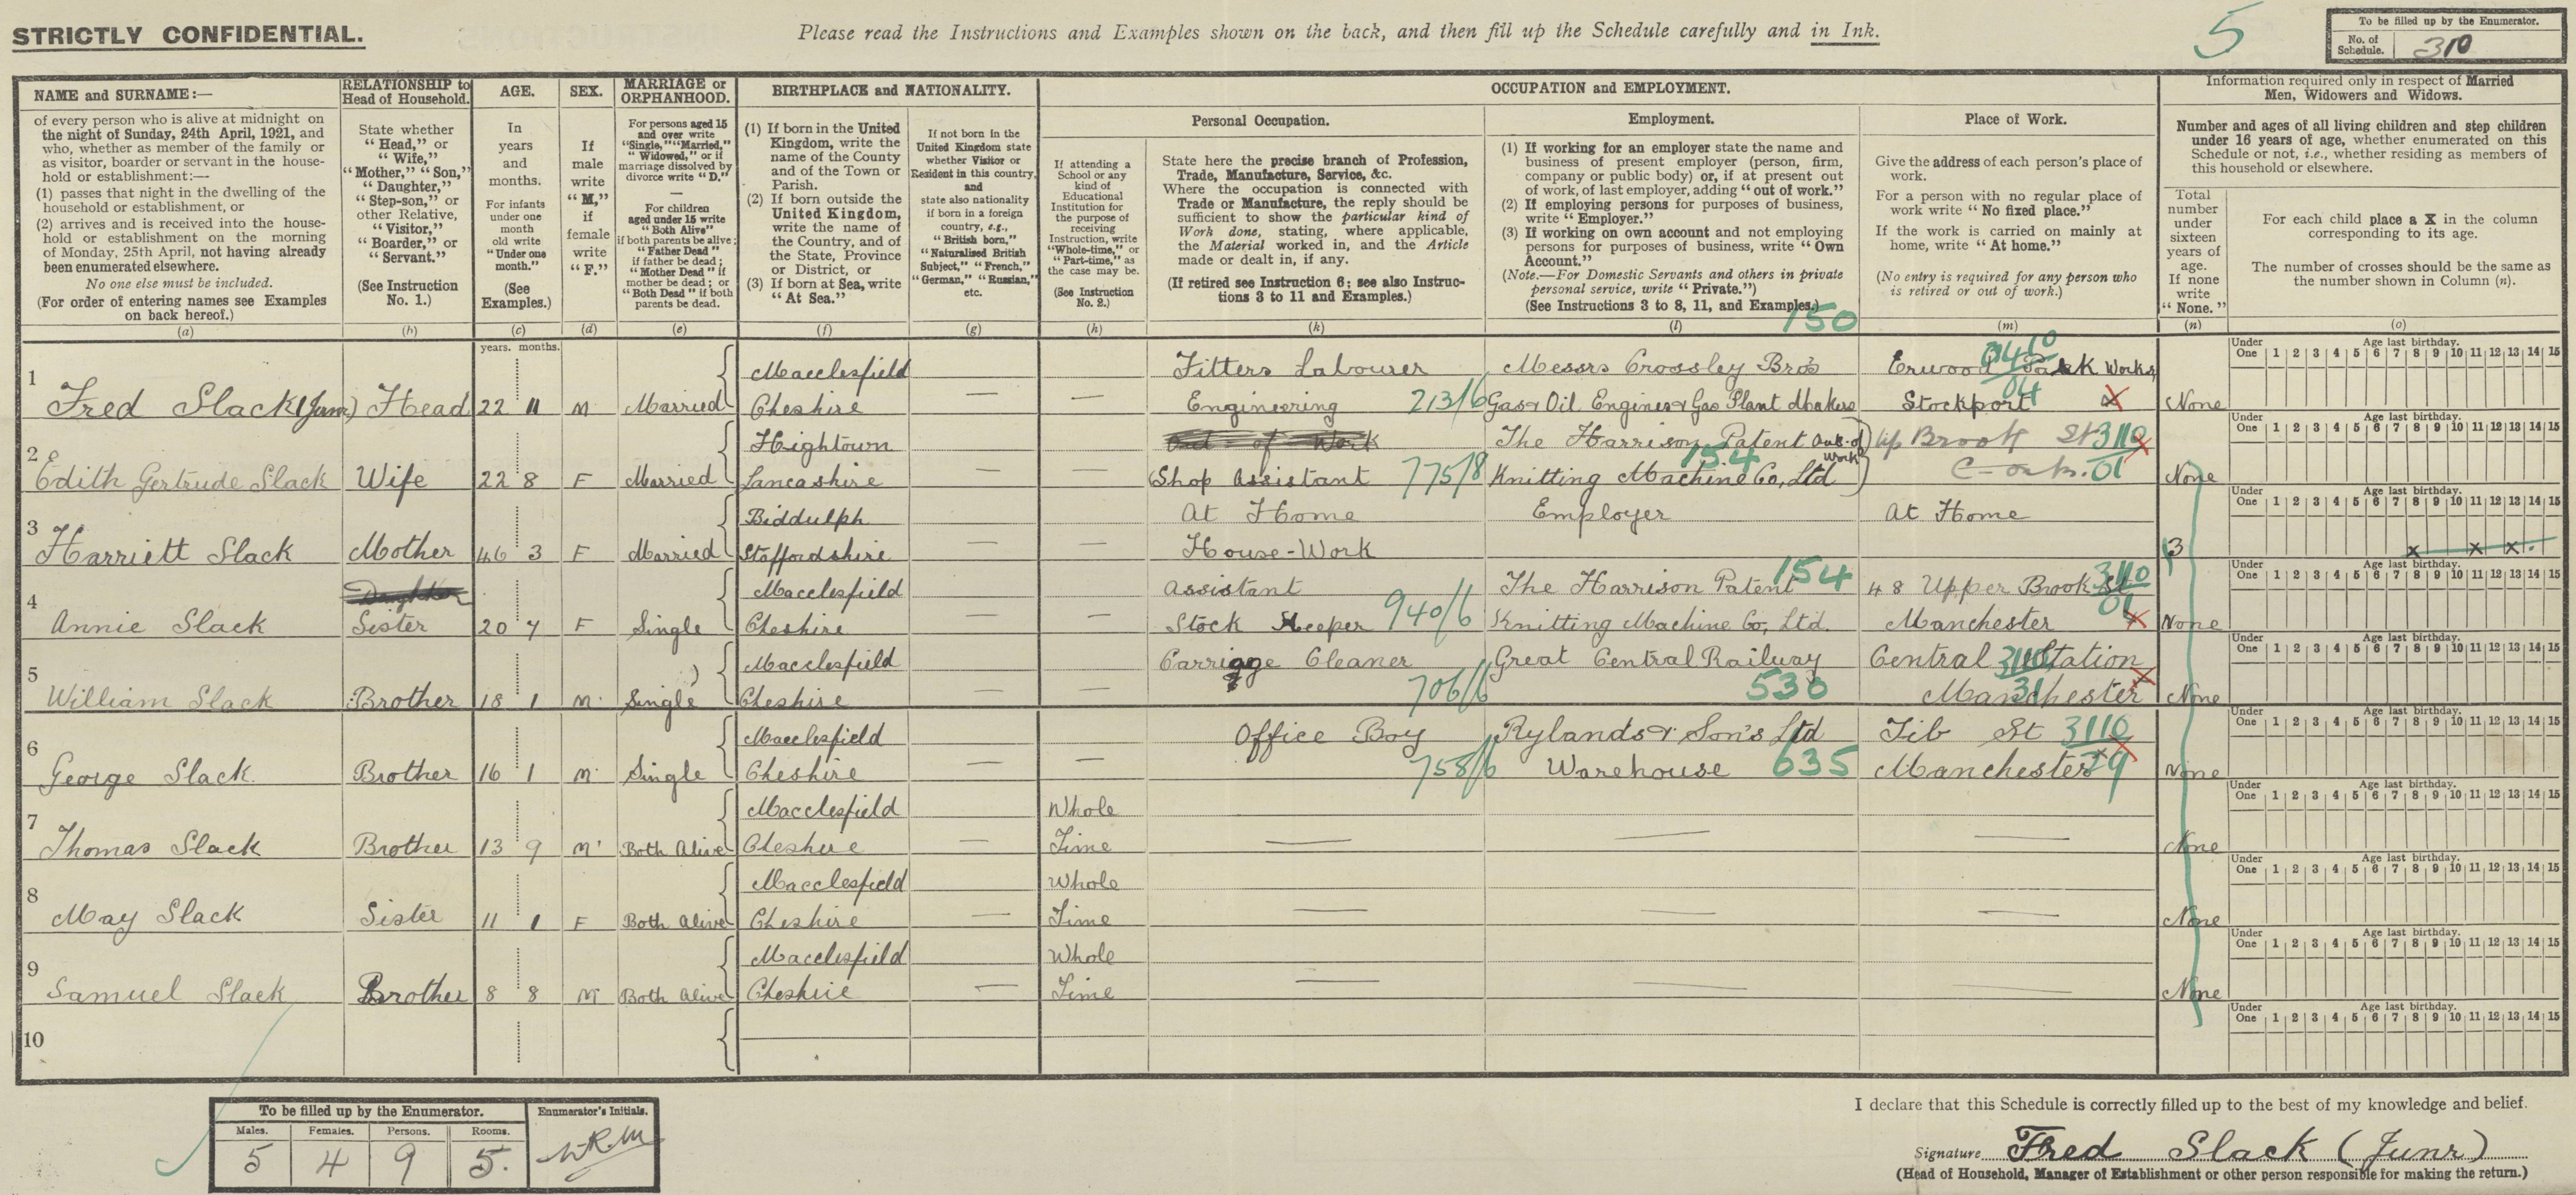 STRICTLY CONFIDENTIAL.
Please read the Instructions and Examples shown on the back, and then fill up the Schedule carefully and in Ink.
5
To be filled up by the Enumerator.
No. of Schedule. 310
NAME and SURNAME:—
of every person who is alive at midnight on
the night of Sunday, 24th April, 1921, and
who, whether as member of the family or
as visitor, boarder or servant in the house-
hold or establishment:—
(1) passes that night in the dwelling of the
household or establishment, or
(2) arrives and is received into the house-
hold or establishment on the morning
of Monday, 25th April, not having already
been enumerated elsewhere.
No one else must be included.
(For order of entering names see Examples
on back hereof.)
(a)
RELATIONSHIP to
Head of Household.
State whether
"Head," or
"Wife,"
"Mother," "Son,"
"Daughter,"
"Step-son," or
other Relative,
"Visitor,"
"Boarder," or
"Servant."
(See Instruction
No. 1.)
(b)
AGE.
In
years
and
months.
For infants
under one
month
old write
"Under one
month."
(See
Examples.)
(c)
SEX.
If
male
write
"M,"
if
female
write
"F."
(d)
MARRIAGE or
ORPHANHOOD.
For persons aged 15
and over write
"Single," "Married,"
"Widowed," or if
marriage dissolved by
divorce write "D."
For children
aged under 15 write
"Both Alive"
if both parents be alive;
"Father Dead"
if father be dead;
"Mother Dead" if
mother be dead; or
"Both Dead" if both
parents be dead.
(e)
BIRTHPLACE and NATIONALITY.
(1) If born in the United
Kingdom, write the
name of the County
and of the Town or
Parish.
(2) If born outside the
United Kingdom,
write the name of
the Country, and of
the State, Province
or District, or
(3) If born at Sea, write
"At Sea."
(f)
If not born in the
United Kingdom state
whether Visitor or
Resident in this country,
and
state also nationality
if born in a foreign
country, e.g.,
"British born,"
"Naturalised British
Subject," "French,"
"German," "Russian,"
etc.
(g)
OCCUPATION and EMPLOYMENT.
If attending a
School or any
kind of
Educational
Institution for
the purpose of
receiving
Instruction, write
"Whole-time," or
"Part-time," as
the case may be.
(See Instruction
No. 2.)
(h)
Personal Occupation.
State here the precise branch of Profession,
Trade, Manufacture, Service, &c.
Where the occupation is connected with
Trade or Manufacture, the reply should be
sufficient to show the particular kind of
Work done, stating, where applicable,
the Material worked in, and the Article
made or dealt in, if any.
(If retired see Instruction 6; see also Instruc-
tions 3 to 11 and Examples.)
(k)
Employment.
(1) If working for an employer state the name and
business of present employer (person, firm,
company or public body) or, if at present out
of work, of last employer, adding "out of work."
(2) If employing persons for purposes of business,
write "Employer."
(3) If working on own account and not employing
persons for purposes of business, write "Own
Account."
(Note.—For Domestic Servants and others in private
personal service, write "Private.")
(See Instructions 3 to 8, 11, and Examples.)
(l)
150
Place of Work.
Give the address of each person's place of
work.
For a person with no regular place of
work write "No fixed place."
If the work is carried on mainly at
home, write "At home."
(No entry is required for any person who
is retired or out of work.)
(m)
Information required only in respect of Married
Men, Widowers and Widows.
Number and ages of all living children and step children
under 16 years of age, whether enumerated on this
Schedule or not, i.e., whether residing as members of
this household or elsewhere.
Total
number
under
sixteen
years of
age.
If none
write
"None."
(n)
For each child place a X in the column
corresponding to its age.
The number of crosses should be the same as
the number shown in Column (n).
(o)
years. months.
Under One 1 2 3 4 5 6 7 8 9 10 11 12 13 14 15
Age last birthday.
1 Fred Slack (Junr) Head 22 11 M Married Macclesfield Cheshire — — Fitters Labourer Engineering 213/6 Messrs Crossley Bro's Gas & Oil Engines & Gas Plant Makers Erwood Park Works Stockport None
2 Edith Gertrude Slack Wife 22 8 F Married Hightown Lancashire — — Out of Work Shop Assistant 775/8 The Harrison Patent Knitting Machine Co, Ltd. Out-of Work 154 Up Brook St 3110 01 None
3 Harriett Slack Mother 46 3 F Married Biddulph Staffordshire — — At Home House-Work Employer At Home 3 x x x
4 Annie Slack Daughter Sister 20 7 F Single Macclesfield Cheshire — — Assistant Stock Keeper 940/6 The Harrison Patent Knitting Machine Co, Ltd. 154 48 Upper Brook St Manchester 3110 01 None
5 William Slack Brother 18 1 M Single Macclesfield Cheshire — — Carriage Cleaner 706/6 Great Central Railway 530 Central Station Manchester None
6 George Slack. Brother 16 1 M Single Macclesfield Cheshire — — Office Boy 758/6 Rylands & Son's Ltd Warehouse 635 Tib St Manchester 3110 None
7 Thomas Slack Brother 13 9 M Both Alive Macclesfield Cheshire — Whole Time — — — None
8 May Slack Sister 11 1 F Both Alive Macclesfield Cheshire — Whole Time — — — None
9 Samuel Slack Brother 8 8 M Both Alive Macclesfield Cheshire — Whole Time — — — None
10
To be filled up by the Enumerator.
Males. Females. Persons. Rooms.
5 4 9 5.
Enumerator's Initials.
I declare that this Schedule is correctly filled up to the best of my knowledge and belief.
Signature Fred Slack (Junr)
(Head of Household, Manager of Establishment or other person responsible for making the return.)